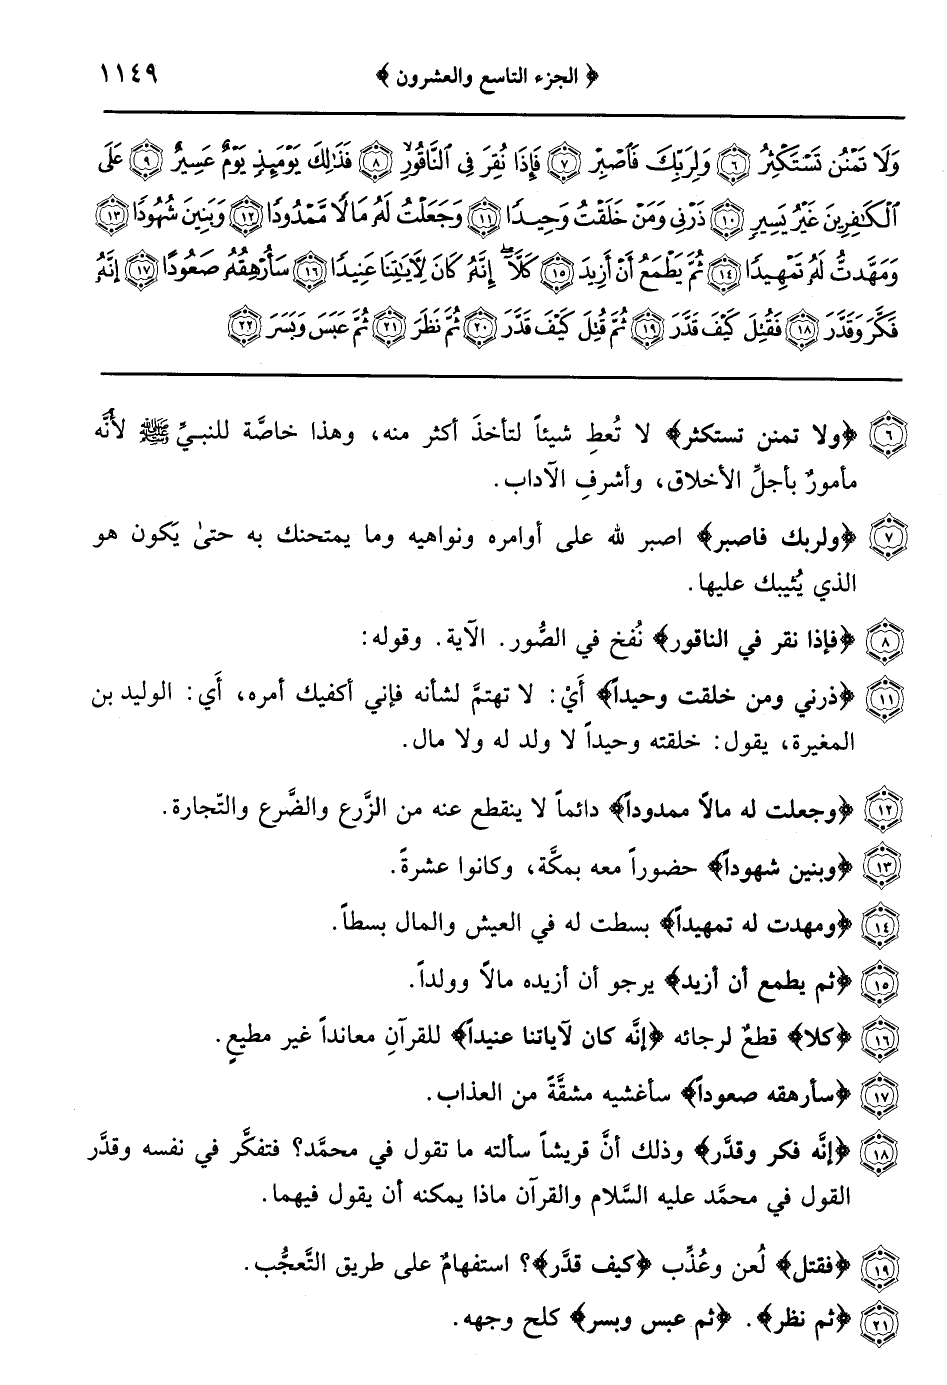 ﴿ الجزء التاسع والعشرون ﴾ ١١٤٩
وَلَا تَمْنُن تَسْتَكْثِرُ ٦ وَلِرَبِّكَ فَاصْبِرْ ٧ فَإِذَا نُقِرَ فِي النَّاقُورِ ٨ فَذَٰلِكَ يَوْمَئِذٍ يَوْمٌ عَسِيرٌ ٩ عَلَى
الْكَٰفِرِينَ غَيْرُ يَسِيرٍ ١٠ ذَرْنِي وَمَنْ خَلَقْتُ وَحِيدًا ١١ وَجَعَلْتُ لَهُ مَالًا مَّمْدُودًا ١٢ وَبَنِينَ شُهُودًا ١٣
وَمَهَّدتُّ لَهُ تَمْهِيدًا ١٤ ثُمَّ يَطْمَعُ أَنْ أَزِيدَ ١٥ كَلَّا ۖ إِنَّهُ كَانَ لِآيَاتِنَا عَنِيدًا ١٦ سَأُرْهِقُهُ صَعُودًا ١٧ إِنَّهُ
فَكَّرَ وَقَدَّرَ ١٨ فَقُتِلَ كَيْفَ قَدَّرَ ١٩ ثُمَّ قُتِلَ كَيْفَ قَدَّرَ ٢٠ ثُمَّ نَظَرَ ٢١ ثُمَّ عَبَسَ وَبَسَرَ ٢٢
٦ ﴿ولا تمنن تستكثر﴾ لا تُعطِ شيئاً لتأخذَ أكثر منه، وهذا خاصَّة للنبيِّ ﷺ لأنَّه
مأمورٌ بأجلِّ الأخلاق، وأشرفِ الآداب.
٧ ﴿ولربك فاصبر﴾ اصبر لله على أوامره ونواهيه وما يمتحنك به حتىٰ يَكون هو
الذي يُثيبك عليها.
٨ ﴿فإذا نقر في الناقور﴾ نُفخ في الصُّور. الآية. وقوله:
١١ ﴿ذرني ومن خلقت وحيداً﴾ أَيْ: لا تهتمَّ لشأنه فإني أكفيك أمره، أَي: الوليد بن
المغيرة، يقول: خلقته وحيداً لا ولد له ولا مال.
١٢ ﴿وجعلت له مالاً ممدوداً﴾ دائماً لا ينقطع عنه من الزَّرع والضَّرع والتّجارة.
١٣ ﴿وبنين شهوداً﴾ حضوراً معه بمكَّة، وكانوا عشرةً.
١٤ ﴿ومهدت له تمهيداً﴾ بسطت له في العيش والمال بسطاً.
١٥ ﴿ثم يطمع أن أزيد﴾ يرجو أن أزيده مالاً وولداً.
١٦ ﴿كلا﴾ قطعٌ لرجائه ﴿إنَّه كان لآياتنا عنيداً﴾ للقرآنِ معانداً غير مطيعٍ.
١٧ ﴿سأرهقه صعوداً﴾ سأغشيه مشقَّةً من العذاب.
١٨ ﴿إنَّه فكر وقدَّر﴾ وذلك أنَّ قريشاً سألته ما تقول في محمَّد؟ فتفكَّر في نفسه وقدَّر
القول في محمَّد عليه السَّلام والقرآن ماذا يمكنه أن يقول فيهما.
١٩ ﴿فقتل﴾ لُعن وعُذِّب ﴿كيف قدَّر﴾؟ استفهامٌ على طريق التَّعجُّب.
٢١ ﴿ثم نظر﴾. ﴿ثم عبس وبسر﴾ كلح وجهه.